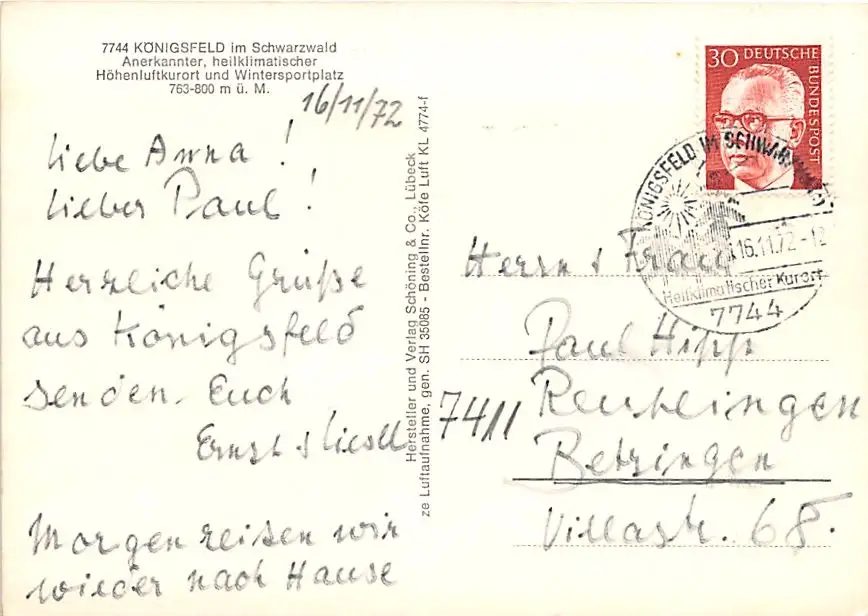 7744 KÖNIGSFELD im Schwarzwald
Anerkannter, heilklimatischer
Höhenluftkurort und Wintersportplatz
763-800 m ü. M.
16/11/72
Liebe Anna!
Lieber Paul!
Herzliche Grüße
aus Königsfeld
senden. Euch
Ernst & Liesel
Morgen reisen wir
wieder nach Hause
Hersteller und Verlag Schöning & Co., Lübeck
ze Luftaufnahme, gen. SH 35085 - Bestellnr. Köfe Luft KL 4774-f
30 DEUTSCHE
BUNDESPOST
KÖNIGSFELD IM SCHWARZWALD
16.11.72-12
Heilklimatischer Kurort
7744
Herrn & Frau
Paul Hipp
7411 Reutlingen
Betzingen
Villastr. 68.